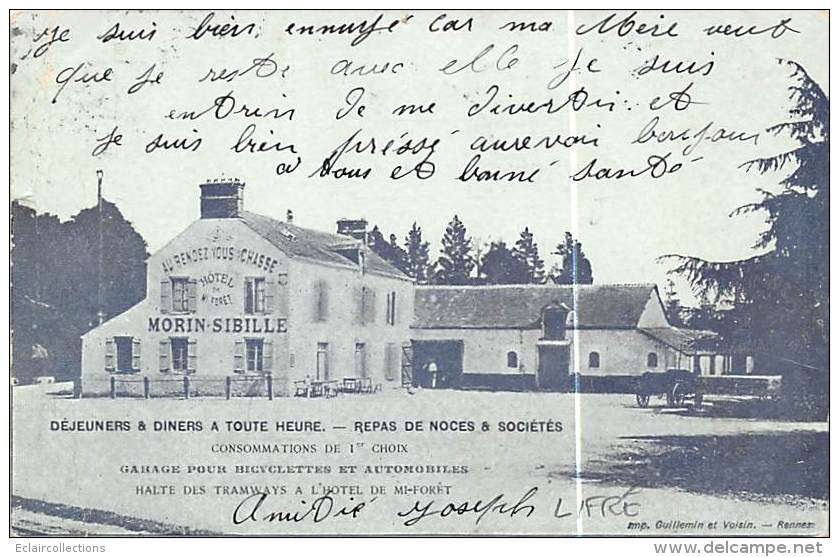 Je suis bien ennuyé car ma Mère veut
que je reste avec elle je suis
entrin de me divertir et
je suis bien préssé aurevoir bonjour
a vous et bonné santé
AU RENDEZ VOUS CHASSE
HÔTEL
MI-FORÊT
MORIN-SIBILLE
DÉJEUNERS & DINERS A TOUTE HEURE. — REPAS DE NOCES & SOCIÉTÉS
CONSOMMATIONS DE 1er CHOIX
GARAGE POUR BICYCLETTES ET AUTOMOBILES
HALTE DES TRAMWAYS A L'HOTEL DE MI-FORÊT
Amitié Joseph LIFRÉ
Imp. Guillemin et Voisin. — Rennes
Eclaircollections
© www.delcampe.net